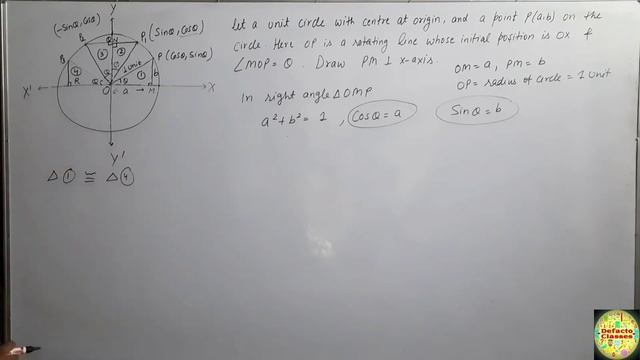 Y
(-Sinθ, Cosθ) P2 P1 (Sinθ, Cosθ)
P3 P (Cosθ, Sinθ)
3 2
4 1 unit 1 b
X' R O a M X
Y'
Let a unit circle with centre at origin, and a point P(a,b) on the
circle. Here OP is a rotating line whose initial position is OX &
∠MOP = θ. Draw PM ⊥ x-axis.
OM = a, PM = b
OP = radius of circle = 1 unit
In right angle Δ OMP
a² + b² = 1, Cosθ = a Sinθ = b
Δ 1 ≅ Δ 4
Defacto
Classes